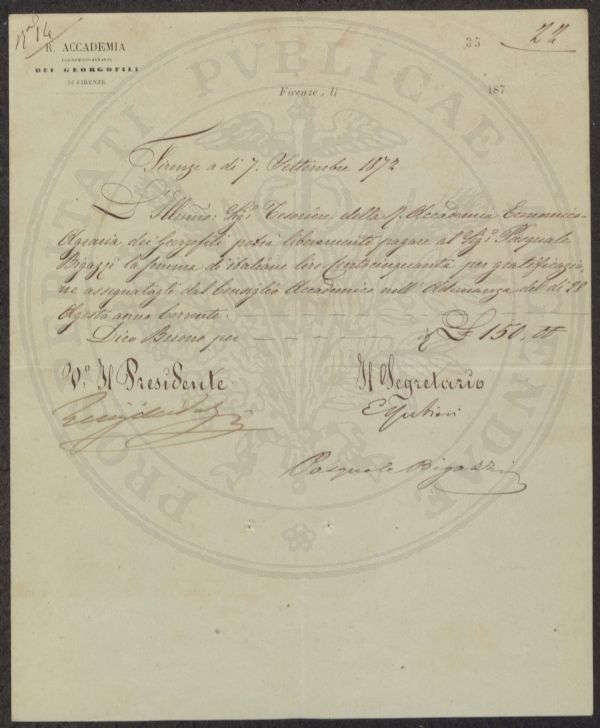 Nº 14
R. ACCADEMIA
ECONOMICO-AGRARIA
DEI GEORGOFILI
DI FIRENZE
35
22
Firenze, lì 187
Firenze a dì 7. Settembre 1872
L'Illmo: Sigr. Tesoriere della R. Accademia Economico-
Agraria dei Georgofili potrà liberamente pagare al Sigr. Pasquale
Bigazzi la somma di italiane lire Centocinquanta per gratificazio-
ne assegnatagli dal Consiglio Accademico nell'Adunanza del dì 28
Agosto anno corrente.
Dico Buono per £ 150,00
Vº. Il Presidente
Il Segretario
Pasquale Bigazzi
PROSPERITATI PUBLICAE AUGENDAE